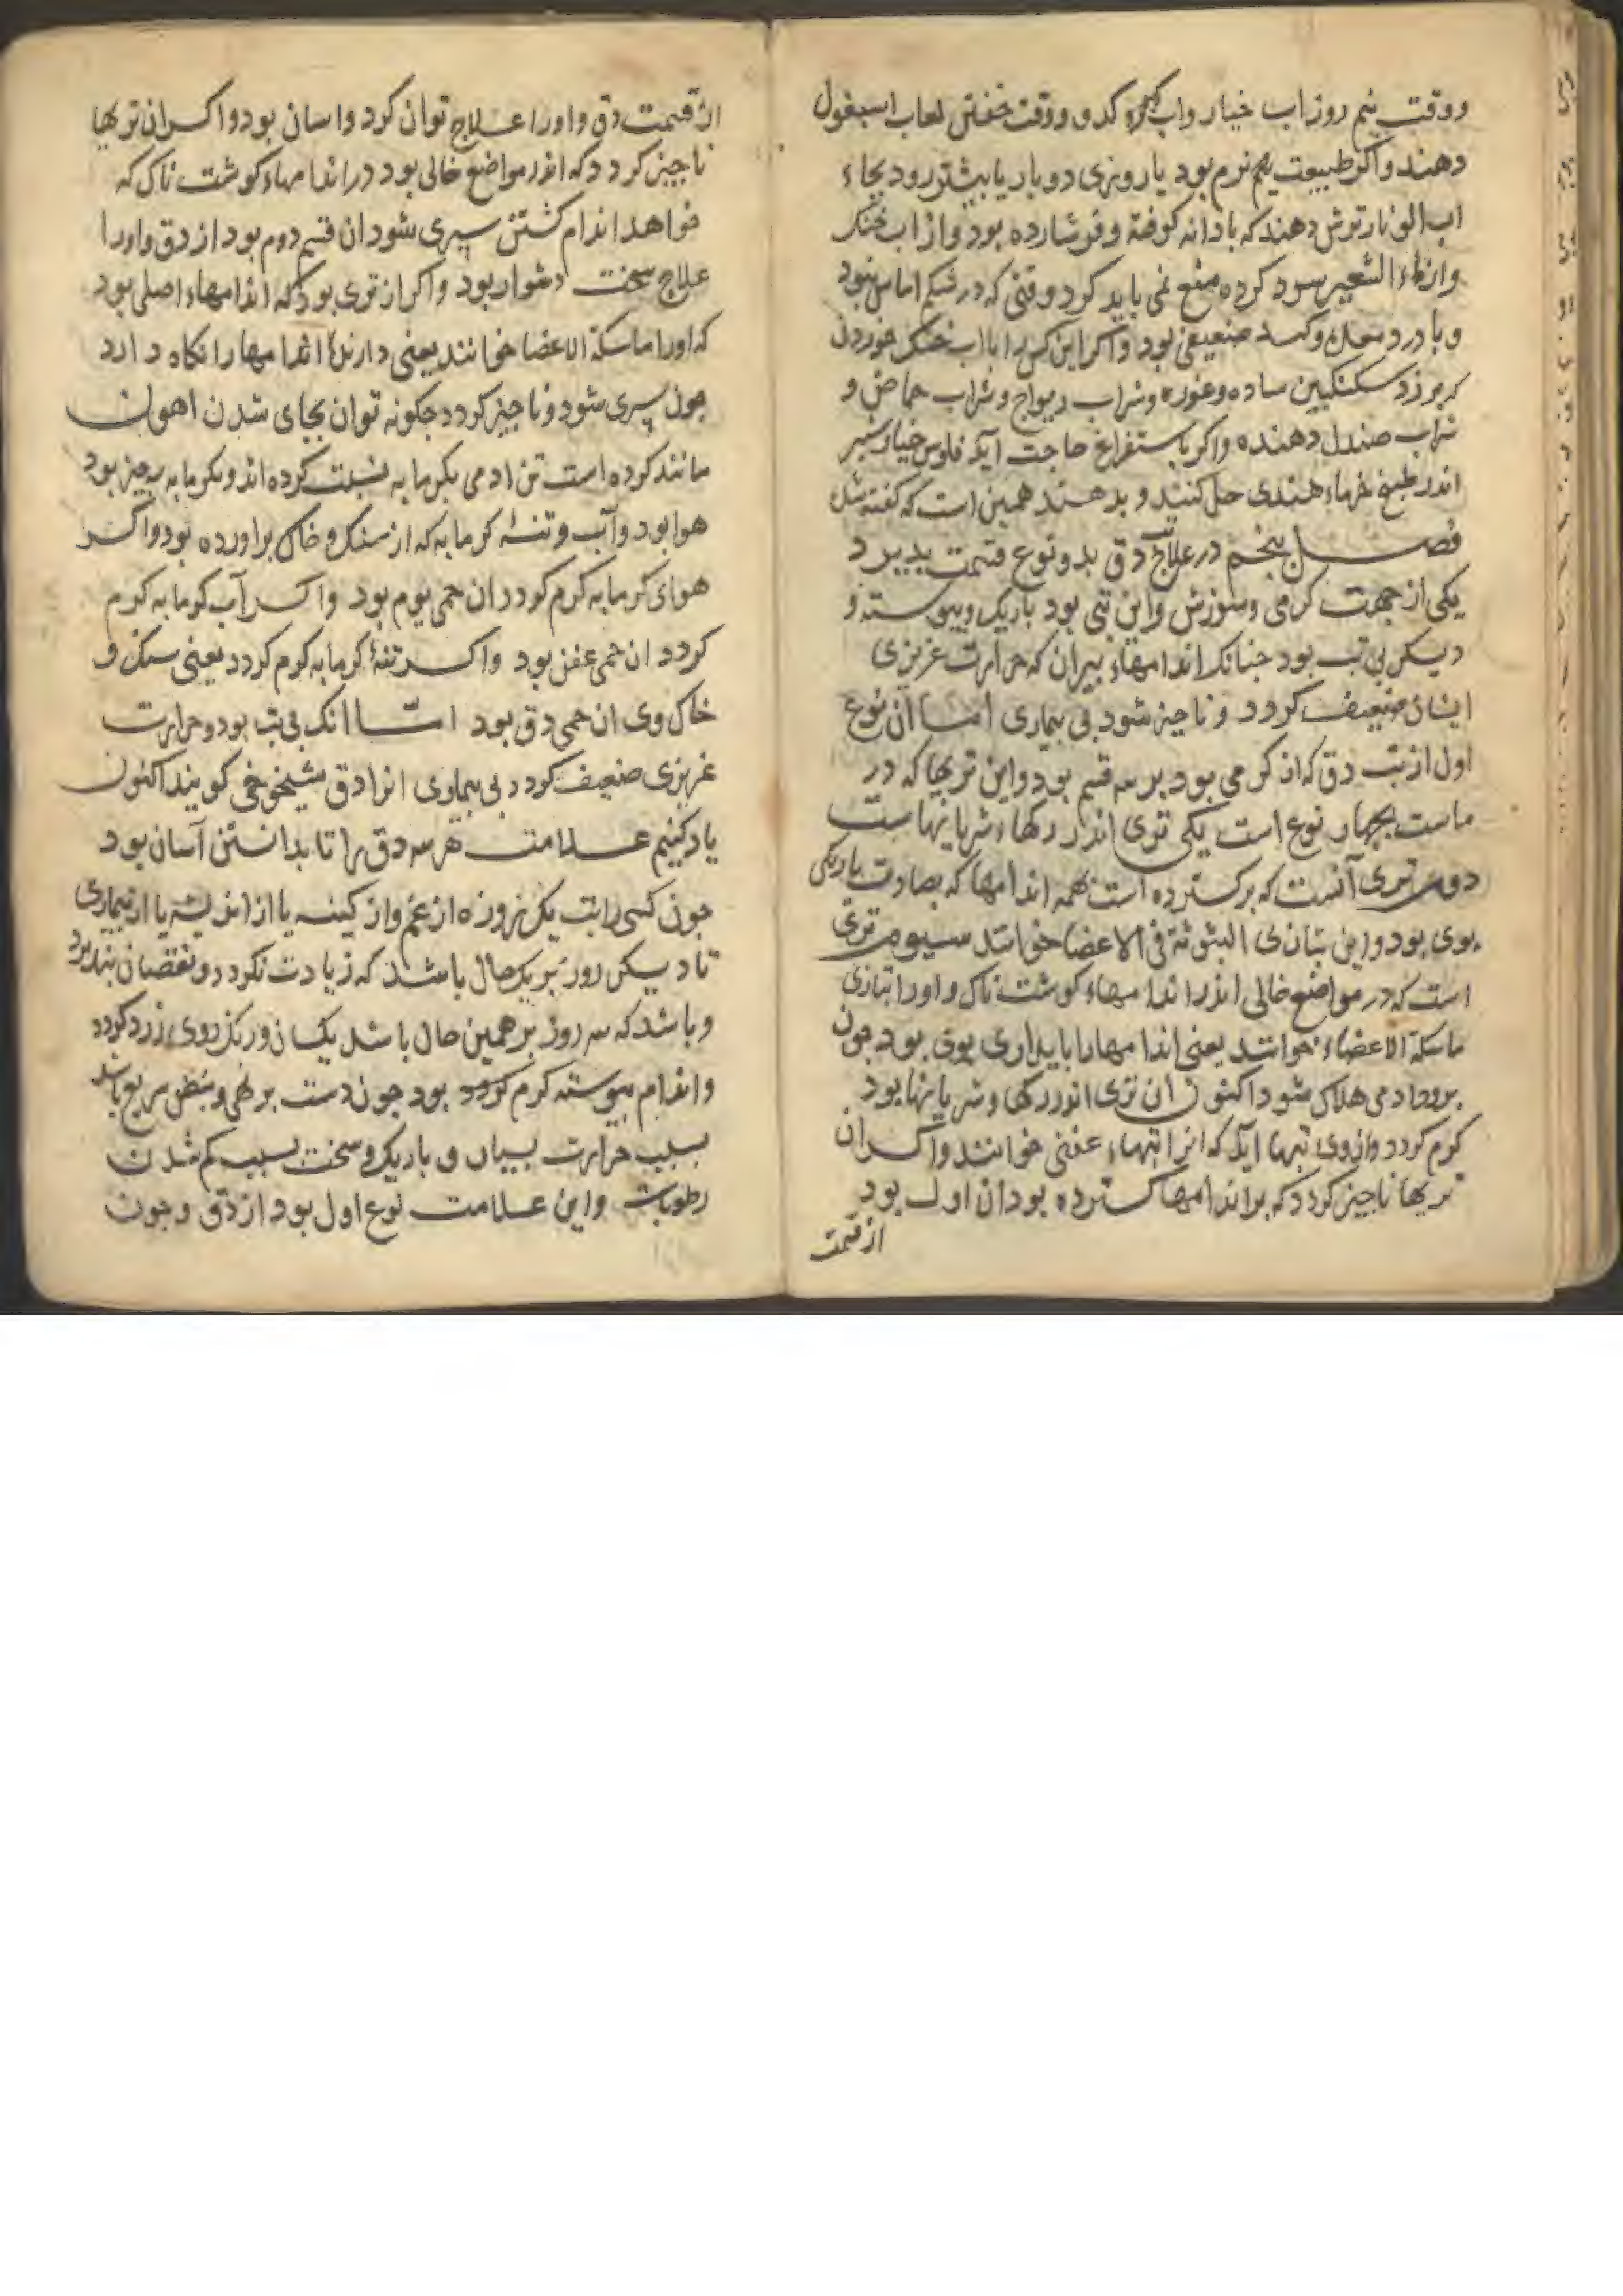 ووقت نیم روز اب خیار واب کدو ووقت خفتن لعاب اسبغول
دهند واکر طبیعت هم نرم بود یا روزی دوبار یا بیشتر رود بجاء
اب الو نار ترش دهند که با دانه کوفته و فشارده بود واز اب خنک
واز ماء الشعیر سود کرده منع نمی باید کرد وقتی که در شکم اماس نبود
وبا درد معده ضعیفی بود واکر این کس را با اب خنک خوردن
سکنکبین ساده وغوره وشراب ریواج وشراب حماض و
شراب صندل دهنده واکر باستفراغ حاجت آید فلوس خیارشنبر
اندر طبیخ خرماء هندی حل کنند و بدهند همین است که کفته شد
فصل پنجم در علاج تب دق بدونوع قسمت پدیرد
یکی از جهت کرمی وسوزش واین تبی بود باریک وپیوسته و
دیکر بی تب بود جنانک اندامهاء پیران که حرارت غریزی
ایشان ضعیف کردد و ناجیز شود بی بیماری امسا آن نوع
اول از تب دق که از کرمی بود بر سه قسم بود واین تریها که در
ماست بجهار نوع است یکی تری اندر رکهاء شریانهاست
دوم تری آنست که بر کسترده است بهمه اندامها که بصارت باریکی
بوی بود واین بتازی المبثوثة فی الاعضا خوانند سیوم تری
است که در مواضع خالی اندر اندامهاء کوشت ناک و اورا بتازی
ماسکة الاعضاء خوانند یعنی اندامها را بایداری بوی بود جون
برود ادمی هلاک شود اکنون ان تری اندر رکها وشریانها بود
کرم کردد وازوی تبها آید که انرا تبهاء عفنی خوانند واکر ان
تریها ناجیز کردد که بر اندامها کسترده بود ان اول بود
از قسمت
از قسمت دق واورا علاج توان کرد واسان بود واکر ان تریها
ناجیز کردد که اندر مواضع خالی بود در اندامهاء کوشت ناک که
خواهد اندام کشتن سپری شود ان قسم دوم بود از دق واورا
علاج سخت دشوار بود واکر از تری بود که اندامهاء اصلی بود
که اورا ماسکة الاعضا خوانند یعنی دارندهٔ اندامها را نکاه دارد
جون سپری شود وناجیز کردد جکونه توان بجای شدن اهون
مانند کرده است تن ادمی بکرمابه نسبت کرده اند وبکرمابه سه جیز بود
هوا بود وآب وتنهٔ کرمابه که از سنک وخاک براورده بود واکر
هوای کرمابه کرم کردد ان حمی یوم بود واکر آب کرمابه کرم
کردد ان حمی عفن بود واکر تنهٔ کرمابه کرم کردد یعنی سنک و
خاک وی ان حمی دق بود امّا انک بی تب بود وحرارت
غریزی ضعیف کردد بی بیماری انرا دق شیخوخی کویند اکنون
یاد کنیم علامت هر سه دق را تا بدانستن آسان بود
جون کسی را تب یک روزه از غم واز کینه یا از اندیشه یا از بیماری
تا دیکر روز بر یک حال باشد که زیادت نکردد و نقصان نپدیرد
وباشد که سه روز بر همین حال باشد یکسان ورنک روی زرد کردد
واندام پیوسته کرم کردد بود جون دست بر نهی ونبض سریع باشد
بسبب حرارت بسیار و باریک و سخت بسبب کم شدن
رطوبات واین علامت نوع اول بود از دق وجون